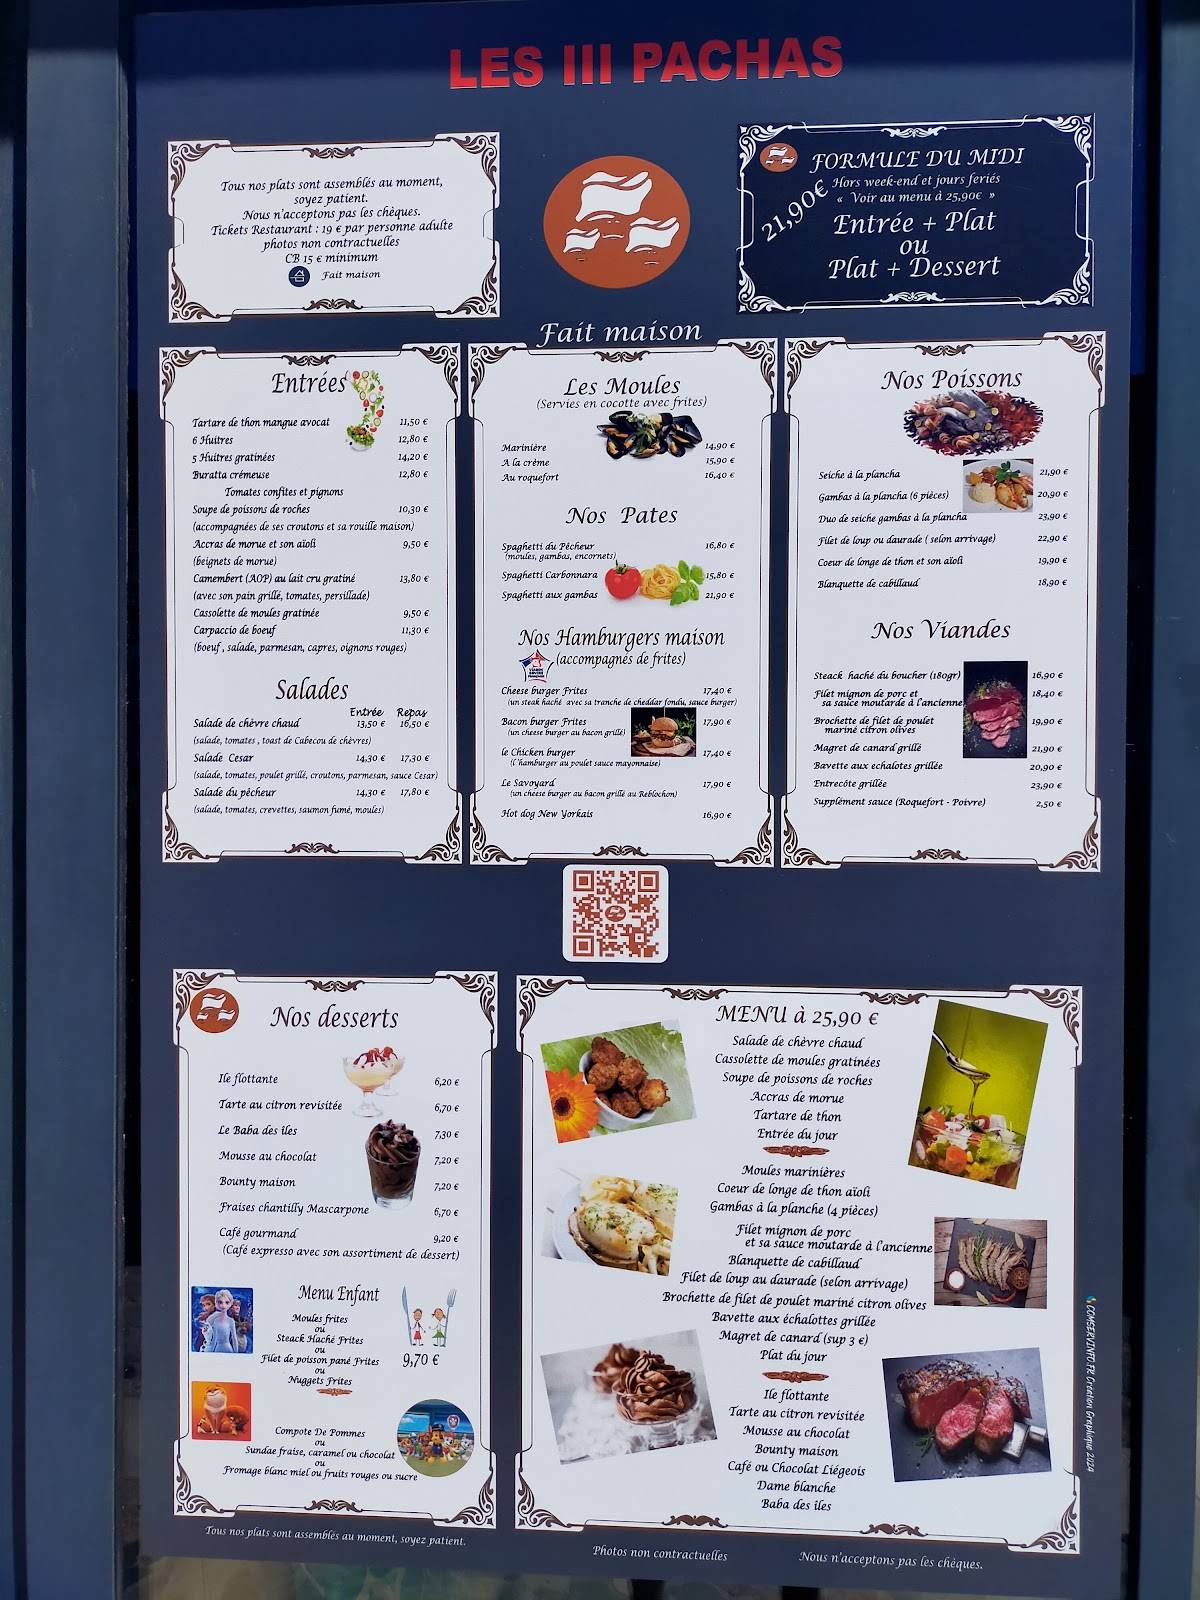 LES III PACHAS
Tous nos plats sont assemblés au moment,
soyez patient.
Nous n'acceptons pas les chèques.
Tickets Restaurant : 19 € par personne adulte
photos non contractuelles
CB 15 € minimum
Fait maison
FORMULE DU MIDI
Hors week-end et jours feriés
« Voir au menu à 25,90€ »
21,90€
Entrée + Plat
ou
Plat + Dessert
Fait maison
Entrées
Tartare de thon mangue avocat 11,50 €
6 Huitres 12,80 €
5 Huitres gratinées 14,20 €
Buratta crémeuse 12,80 €
Tomates confites et pignons
Soupe de poissons de roches 10,30 €
(accompagnées de ses croutons et sa rouille maison)
Accras de morue et son aïoli 9,50 €
(beignets de morue)
Camembert (AOP) au lait cru gratiné 13,80 €
(avec son pain grillé, tomates, persillade)
Cassolette de moules gratinée 9,50 €
Carpaccio de boeuf 11,30 €
(boeuf , salade, parmesan, capres, oignons rouges)
Salades
Entrée Repas
Salade de chèvre chaud 13,50 € 16,50 €
(salade, tomates , toast de Cabecou de chèvres)
Salade Cesar 14,30 € 17,30 €
(salade, tomates, poulet grillé, croutons, parmesan, sauce Cesar)
Salade du pêcheur 14,30 € 17,80 €
(salade, tomates, crevettes, saumon fumé, moules)
Les Moules
(Servies en cocotte avec frites)
Marinière 14,90 €
A la crème 15,90 €
Au roquefort 16,40 €
Nos Pates
Spaghetti du Pêcheur 16,80 €
(moules, gambas, encornets)
Spaghetti Carbonnara 15,80 €
Spaghetti aux gambas 21,90 €
Nos Hamburgers maison
(accompagnés de frites)
Cheese burger Frites 17,40 €
(un steak haché avec sa tranche de cheddar fondu, sauce burger)
Bacon burger Frites 17,90 €
(un cheese burger au bacon grillé)
le Chicken burger 17,40 €
(l'hamburger au poulet sauce mayonnaise)
Le Savoyard 17,90 €
(un cheese burger au bacon grillé au Reblochon)
Hot dog New Yorkais 16,90 €
Nos Poissons
Seiche à la plancha 21,90 €
Gambas à la plancha (6 pièces) 20,90 €
Duo de seiche gambas à la plancha 23,90 €
Filet de loup ou daurade ( selon arrivage) 22,90 €
Coeur de longe de thon et son aïoli 19,90 €
Blanquette de cabillaud 18,90 €
Nos Viandes
Steack haché du boucher (180gr) 16,90 €
Filet mignon de porc et 18,40 €
sa sauce moutarde à l'ancienne
Brochette de filet de poulet 19,90 €
mariné citron olives
Magret de canard grillé 21,90 €
Bavette aux echalotes grillée 20,90 €
Entrecôte grillée 23,90 €
Supplément sauce (Roquefort - Poivre) 2,50 €
Nos desserts
Ile flottante 6,20 €
Tarte au citron revisitée 6,70 €
Le Baba des iles 7,30 €
Mousse au chocolat 7,20 €
Bounty maison 7,20 €
Fraises chantilly Mascarpone 6,70 €
Café gourmand 9,20 €
(Café expresso avec son assortiment de dessert)
Menu Enfant
Moules frites
ou
Steack Haché Frites
ou
Filet de poisson pané Frites 9,70 €
ou
Nuggets Frites
Compote De Pommes
ou
Sundae fraise, caramel ou chocolat
ou
Fromage blanc miel ou fruits rouges ou sucre
MENU à 25,90 €
Salade de chèvre chaud
Cassolette de moules gratinées
Soupe de poissons de roches
Accras de morue
Tartare de thon
Entrée du jour
Moules marinières
Coeur de longe de thon aïoli
Gambas à la planche (4 pièces)
Filet mignon de porc
et sa sauce moutarde à l'ancienne
Blanquette de cabillaud
Filet de loup au daurade (selon arrivage)
Brochette de filet de poulet mariné citron olives
Bavette aux échalottes grillée
Magret de canard (sup 3 €)
Plat du jour
Ile flottante
Tarte au citron revisitée
Mousse au chocolat
Bounty maison
Café ou Chocolat Liégeois
Dame blanche
Baba des iles
COMSERVINFO.FR Création Graphique 2024
Tous nos plats sont assemblés au moment, soyez patient.
Photos non contractuelles
Nous n'acceptons pas les chèques.